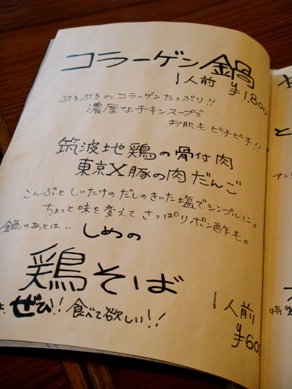 コラーゲン鍋
1人前 ¥1,800
ぷるぷるのコラーゲンたっぷり!!
濃厚なチキンスープで
お肌もピチピチ!!
筑波地鶏の骨付肉
東京X豚の肉だんご
こんぶとしいたけのだしのきいた塩でシンプルに。
ちょっと味を変えてさっぱりポン酢も。
鍋のあとは‥
しめの
鶏そば
1人前
ぜひ!! 食べて欲しい!!
¥60